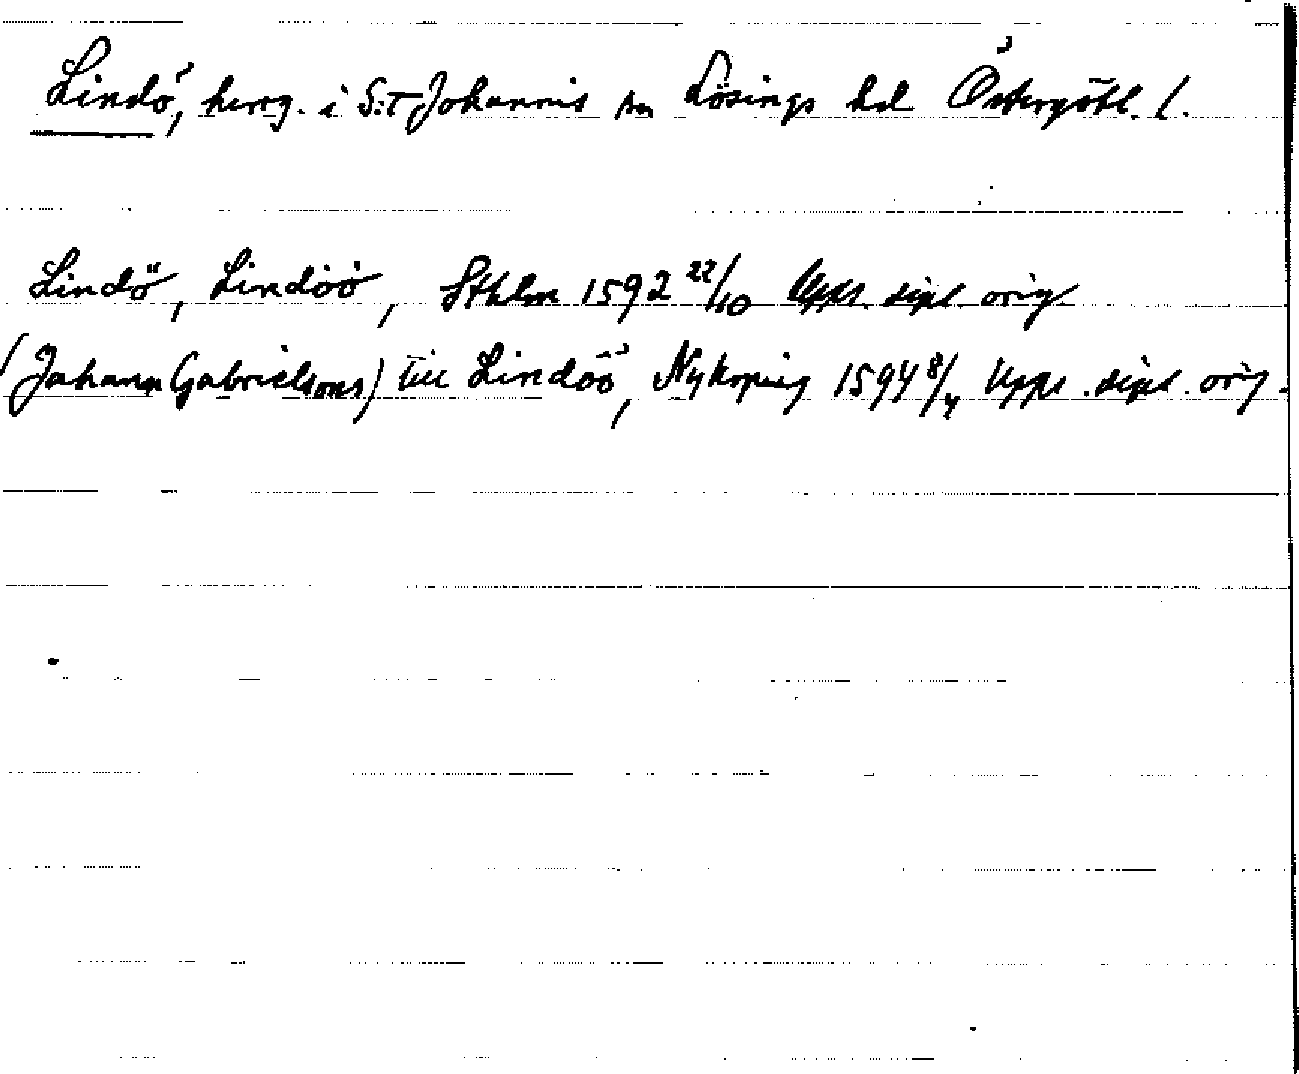 Lindö, herrg. i S:T Johannis sn Lösings hd Östergötl. l.
Lindö, Lindöö, Sthlm 1592 22/10 Upps. dipl. orig
(Johann Gabrielsons) till Lindöö, Nyköping 1594 8/4 Upps. dipl. orig.